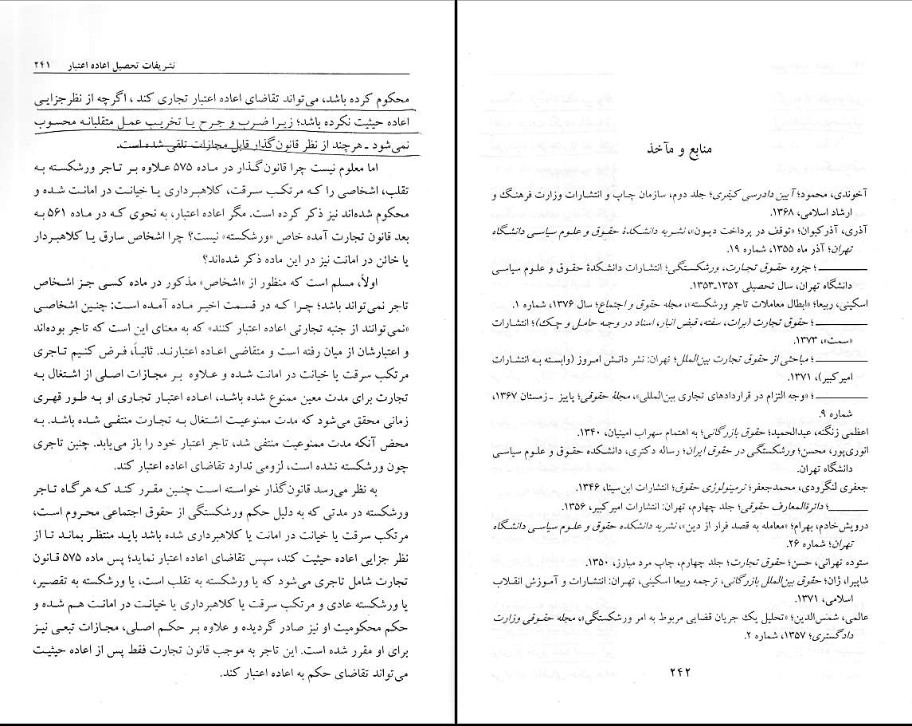 تشریفات تحصیل اعاده اعتبار ۲۴۱
محکوم کرده باشد، می‌تواند تقاضای اعاده اعتبار تجاری کند، اگرچه از نظر جزایی
اعاده حیثیت نکرده باشد؛ زیرا ضرب و جرح یا تخریب عمل متقلبانه محسوب
نمی‌شود ـ هرچند از نظر قانون‌گذار قابل مجازات تلقی شده است.
اما معلوم نیست چرا قانون‌گذار در ماده ۵۷۵ علاوه بر تاجر ورشکسته به
تقلب، اشخاصی را که مرتکب سرقت، کلاهبرداری یا خیانت در امانت شده و
محکوم شده‌اند نیز ذکر کرده است. مگر اعاده اعتبار، به نحوی که در ماده ۵۶۱ به
بعد قانون تجارت آمده خاص «ورشکسته» نیست؟ چرا اشخاص سارق یا کلاهبردار
یا خائن در امانت نیز در این ماده ذکر شده‌اند؟
اولاً، مسلم است که منظور از «اشخاص» مذکور در ماده کسی جز اشخاص
تاجر نمی‌تواند باشد؛ چرا که در قسمت اخیر ماده آمده است: چنین اشخاصی
«نمی‌توانند از جنبه تجارتی اعاده اعتبار کنند» که به معنای این است که تاجر بوده‌اند
و اعتبارشان از میان رفته است و متقاضی اعاده اعتبارند. ثانیاً، فرض کنیم تاجری
مرتکب سرقت یا خیانت در امانت شده و علاوه بر مجازات اصلی از اشتغال به
تجارت برای مدت معین ممنوع شده باشد، اعاده اعتبار تجاری او به طور قهری
زمانی محقق می‌شود که مدت ممنوعیت اشتغال به تجارت منتفی شده باشد. به
محض آنکه مدت ممنوعیت منتفی شد، تاجر اعتبار خود را باز می‌یابد. چنین تاجری
چون ورشکسته نشده است، لزومی ندارد تقاضای اعاده اعتبار کند.
به نظر می‌رسد قانون‌گذار خواسته است چنین مقرر کند که هرگاه تاجر
ورشکسته در مدتی که به دلیل حکم ورشکستگی از حقوق اجتماعی محروم است،
مرتکب سرقت یا خیانت در امانت یا کلاهبرداری شده باشد باید منتظر بماند تا از
نظر جزایی اعاده حیثیت کند، سپس تقاضای اعاده اعتبار نماید؛ پس ماده ۵۷۵ قانون
تجارت شامل تاجری می‌شود که یا ورشکسته به تقلب است، یا ورشکسته به تقصیر،
یا ورشکسته عادی و مرتکب سرقت یا کلاهبرداری یا خیانت در امانت هم شده و
حکم محکومیت او نیز صادر گردیده و علاوه بر حکم اصلی، مجازات تبعی نیز
برای او مقرر شده است. این تاجر به موجب قانون تجارت فقط پس از اعاده حیثیت
می‌تواند تقاضای حکم به اعاده اعتبار کند.
منابع و مآخذ
آخوندی، محمود؛ آیین دادرسی کیفری؛ جلد دوم، سازمان چاپ و انتشارات وزارت فرهنگ و
ارشاد اسلامی، ۱۳۶۸.
آذری، آذرکیوان؛ «توقف در پرداخت دیون»، نشریه دانشکدهٔ حقوق و علوم سیاسی دانشگاه
تهران؛ آذر ماه ۱۳۵۵، شماره ۱۹.
ـــــــــ؛ جزوه حقوق تجارت، ورشکستگی؛ انتشارات دانشکدهٔ حقوق و علوم سیاسی
دانشگاه تهران، سال تحصیلی ۱۳۵۲ـ۱۳۵۳.
اسکینی، ربیعا؛ «ابطال معاملات تاجر ورشکسته»، مجله حقوق و اجتماع؛ سال ۱۳۷۶، شماره ۱.
ـــــــــ؛ حقوق تجارت (برات، سفته، قبض انبار، اسناد در وجه حامل و چک)؛ انتشارات
«سمت»، ۱۳۷۳.
ـــــــــ؛ مباحثی از حقوق تجارت بین‌الملل؛ تهران: نشر دانش امروز (وابسته به انتشارات
امیرکبیر)، ۱۳۷۱.
ـــــــــ؛ «وجه التزام در قراردادهای تجاری بین‌المللی»، مجلهٔ حقوقی؛ پاییز ـ زمستان ۱۳۶۷،
شماره ۹.
اعظمی زنگنه، عبدالحمید؛ حقوق بازرگانی؛ به اهتمام سهراب امینیان، ۱۳۴۰.
انوری‌پور، محسن؛ ورشکستگی در حقوق ایران؛ رساله دکتری، دانشکده حقوق و علوم سیاسی
دانشگاه تهران.
جعفری لنگرودی، محمدجعفر؛ ترمینولوژی حقوق؛ انتشارات ابن‌سینا، ۱۳۴۶.
ـــــــــ؛ دائرةالمعارف حقوقی؛ جلد چهارم، تهران: انتشارات امیرکبیر، ۱۳۵۶.
درویش‌خادم، بهرام؛ «معامله به قصد فرار از دین»، نشریه دانشکده حقوق و علوم سیاسی دانشگاه
تهران؛ شماره ۲۶.
ستوده تهرانی، حسن؛ حقوق تجارت؛ جلد چهارم، چاپ مرد مبارز، ۱۳۵۰.
شاپیرا، ژان؛ حقوق بین‌الملل بازرگانی، ترجمه ربیعا اسکینی، تهران: انتشارات و آموزش انقلاب
اسلامی، ۱۳۷۱.
عالمی، شمس‌الدین؛ «تحلیل یک جریان قضایی مربوط به امر ورشکستگی»، مجله حقوقی وزارت
دادگستری؛ ۱۳۵۷، شماره ۲.
۲۴۲